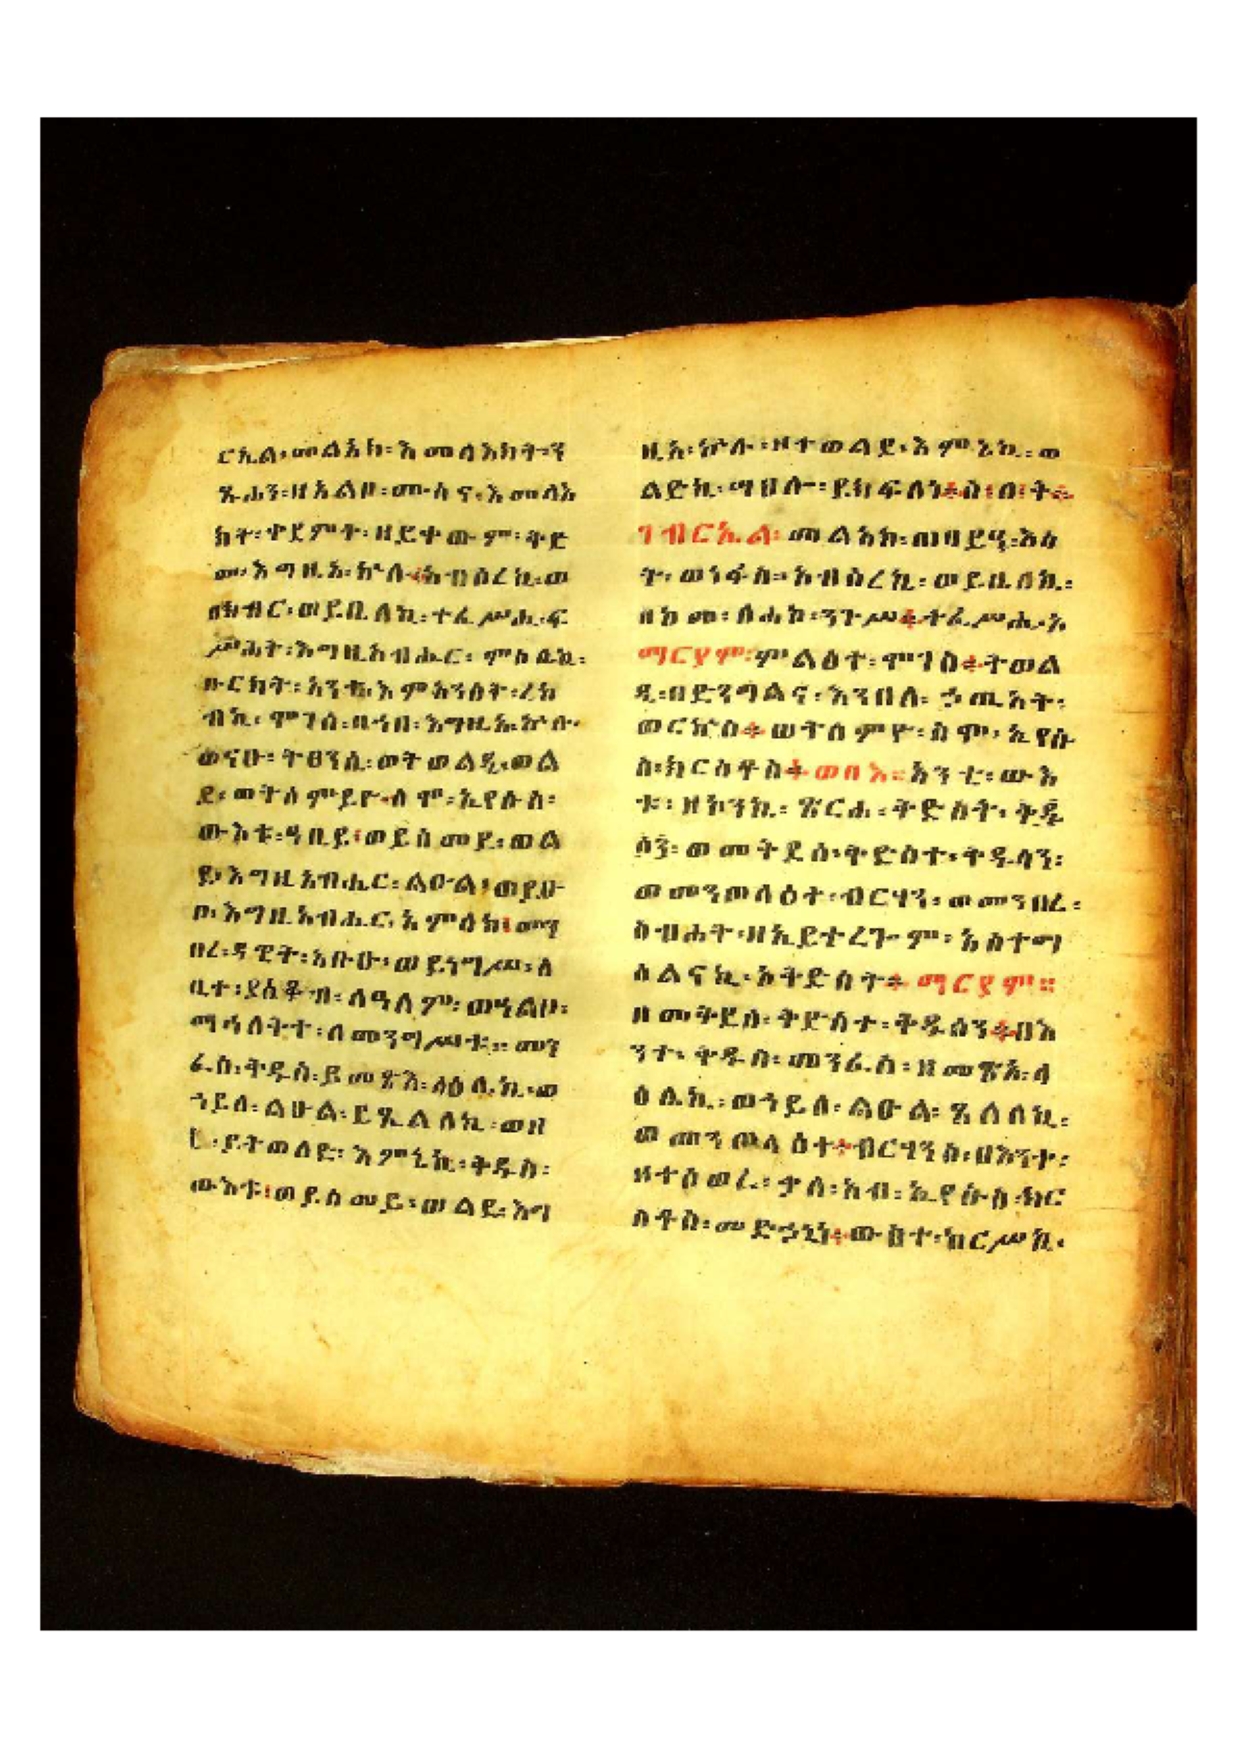 ርኤል፡መልአክ፡እመላእክት፡ን
ጹሐን፡ዘአልቦ፡ሙስና፡እመላእ
ክት፡ቀደምት፡ዘይተውም፡ቅድ
መ፡እግዚአ፡ኵሉ፡አብሰረኪ፡ወ
ወይቤለኪ፡ተፈሥሒ፡ፍ
ሥሕት፡እግዚአብሔር፡ምስሌኪ፡
ቡርክት፡አንቲ፡እምአንስት፡ረከ
ብኪ፡ሞገሰ፡በኀበ፡እግዚአ፡ኵሉ፡
ወናሁ፡ትፀንሲ፡ወትወልዲ፡ወል
ደ፡ወትሰምይዮ፡ስሞ፡ኢየሱስ፡
ውእቱ፡ዓቢይ፡ወይሰመይ፡ወል
ደ፡እግዚአብሔር፡ልዑል፡ወይሁ
ቦ፡እግዚአብሔር፡አምላክ፡መን
በረ፡ዳዊት፡አቡሁ፡ወይነግሥ፡ለ
ቤተ፡ያዕቆብ፡ለዓለም፡ወአልቦ፡
ማኅለቅተ፡ለመንግሥቱ፡፡መን
ፈስ፡ቅዱስ፡ይመጽእ፡ላዕሌኪ፡ወ
ኀይለ፡ልዑል፡ይጼልለኪ፡ወዘ
ይትወለድ፡እምኔኪ፡ቅዱስ፡
ውእቱ፡ወይሰመይ፡ወልደ፡እግ
ዚአ፡ኵሉ፡ዘተወልደ፡እምኔኪ፡ወ
ልድኪ፡ሣህሎ፡ያክፍለነ፡ስ፡ለ፡ቅ፡
ገብርኤል፡መልአክ፡ዘዘይዌ፡እሳ
ት፡ወነፋስ፡አብሰረኪ፡ወይቤለኪ፡
ዘከመ፡ለሐከ፡ንጉሥ፡ተፈሥሒ፡ኦ
ማርያም፡ምልዕተ፡ሞገስ፡ትወል
ዲ፡በድንግልና፡እንበለ፡ኃጢአት፡
ወርኵስ፡ወትሰምዮ፡ስሞ፡ኢየሱ
ስ፡ክርስቶስ፡ወበእ፡አንቲ፡ውእ
ቱ፡ዘኮንኪ፡ጽርሐ፡ቅድሳት፡ቅዱ
ሳን፡ወመቅደሰ፡ቅድስተ፡ቅዱሳን፡
ወመንጦላዕተ፡ብርሃን፡ወመንበረ፡
ስብሐት፡ዘኢይተረጐም፡አስተማ
ሰልናኪ፡ኦቅድስት፡ማርያም፡፡
ዘመቅደሰ፡ቅድስተ፡ቅዱሳን፡በእ
ንተ፡ቅዱስ፡መንፈስ፡ዘመጽአ፡ላ
ዕሌኪ፡ወኀይለ፡ልዑል፡ጸለለኪ፡
ወመንጦላዕተ፡ብርሃንሰ፡በእንተ፡
ዘተሰወረ፡ቃለ፡አብ፡ኢየሱስ፡ክር
ስቶስ፡መድኃኒነ፡ውስተ፡ከርሥኪ፡